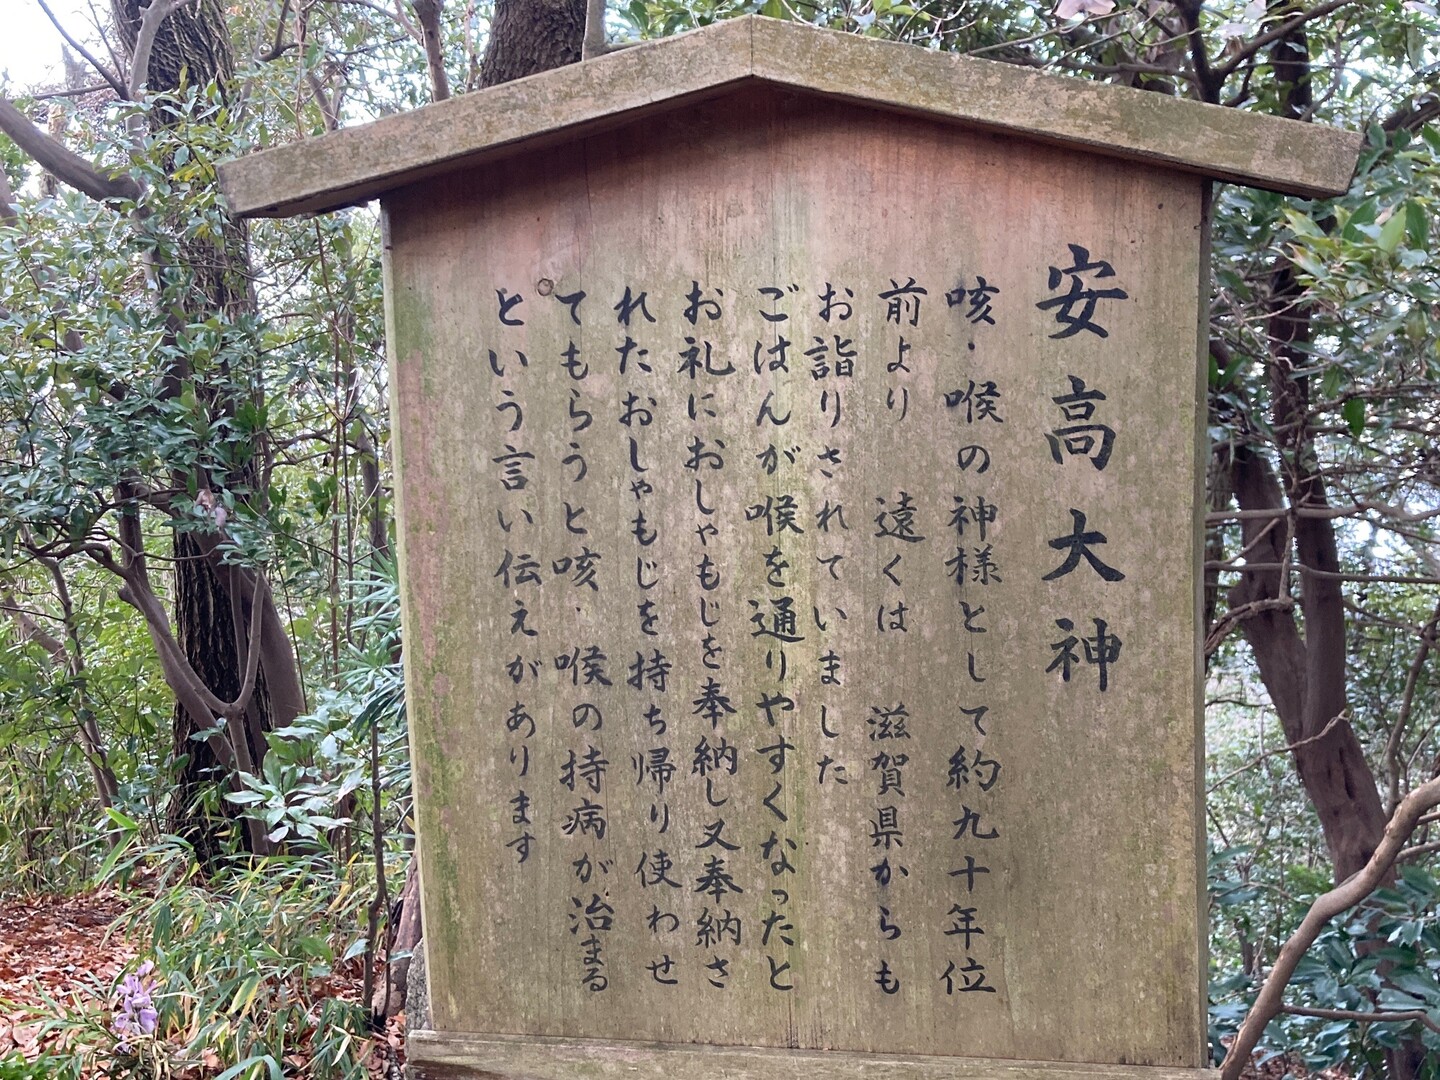 安高大神
咳・喉の神様として約九十年位
前より　遠くは　滋賀県からも
お詣りされていました
ごはんが喉を通りやすくなったと
お礼におしゃもじを奉納し又奉納さ
れたおしゃもじを持ち帰り使わせ
てもらうと咳・喉の持病が治まる
という言い伝えがあります